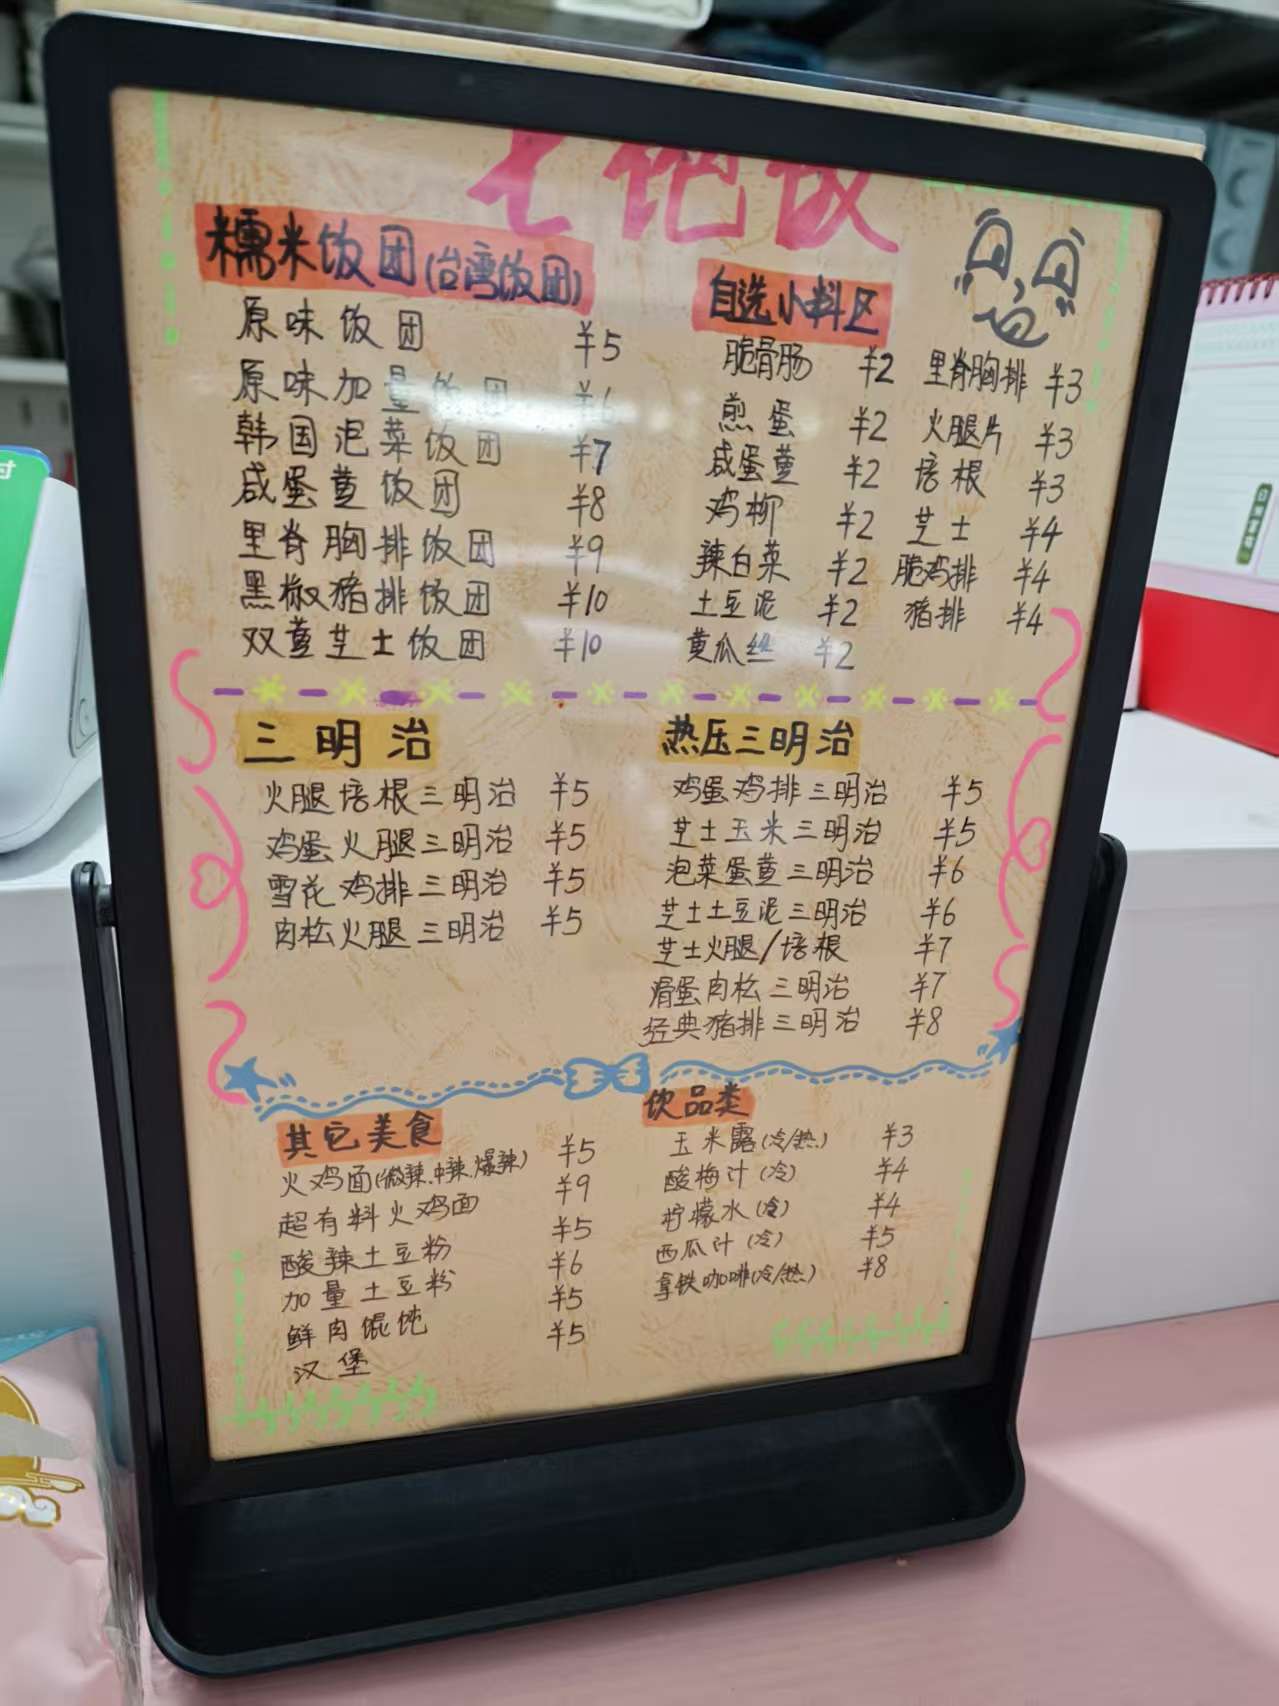 七饱饭
糯米饭团(台湾饭团)
原味饭团 ¥5
原味加量饭团 ¥6
韩国泡菜饭团 ¥7
咸蛋黄饭团 ¥8
里脊胸排饭团 ¥9
黑椒猪排饭团 ¥10
双黄芝士饭团 ¥10
自选小料区
脆骨肠 ¥2 里脊胸排 ¥3
煎蛋 ¥2 火腿片 ¥3
咸蛋黄 ¥2 培根 ¥3
鸡柳 ¥2 芝士 ¥4
辣白菜 ¥2 脆鸡排 ¥4
土豆泥 ¥2 猪排 ¥4
黄瓜丝 ¥2
三明治
火腿培根三明治 ¥5
鸡蛋火腿三明治 ¥5
雪花鸡排三明治 ¥5
肉松火腿三明治 ¥5
热压三明治
鸡蛋鸡排三明治 ¥5
芝士玉米三明治 ¥5
泡菜蛋黄三明治 ¥6
芝士土豆泥三明治 ¥6
芝士火腿/培根 ¥7
滑蛋肉松三明治 ¥7
经典猪排三明治 ¥8
其它美食
火鸡面(微辣.中辣.爆辣) ¥5
超有料火鸡面 ¥9
酸辣土豆粉 ¥5
加量土豆粉 ¥6
鲜肉馄饨 ¥5
汉堡 ¥5
饮品类
玉米露(冷/热) ¥3
酸梅汁(冷) ¥4
柠檬水(冷) ¥4
西瓜汁(冷) ¥5
拿铁咖啡(冷/热) ¥8
付